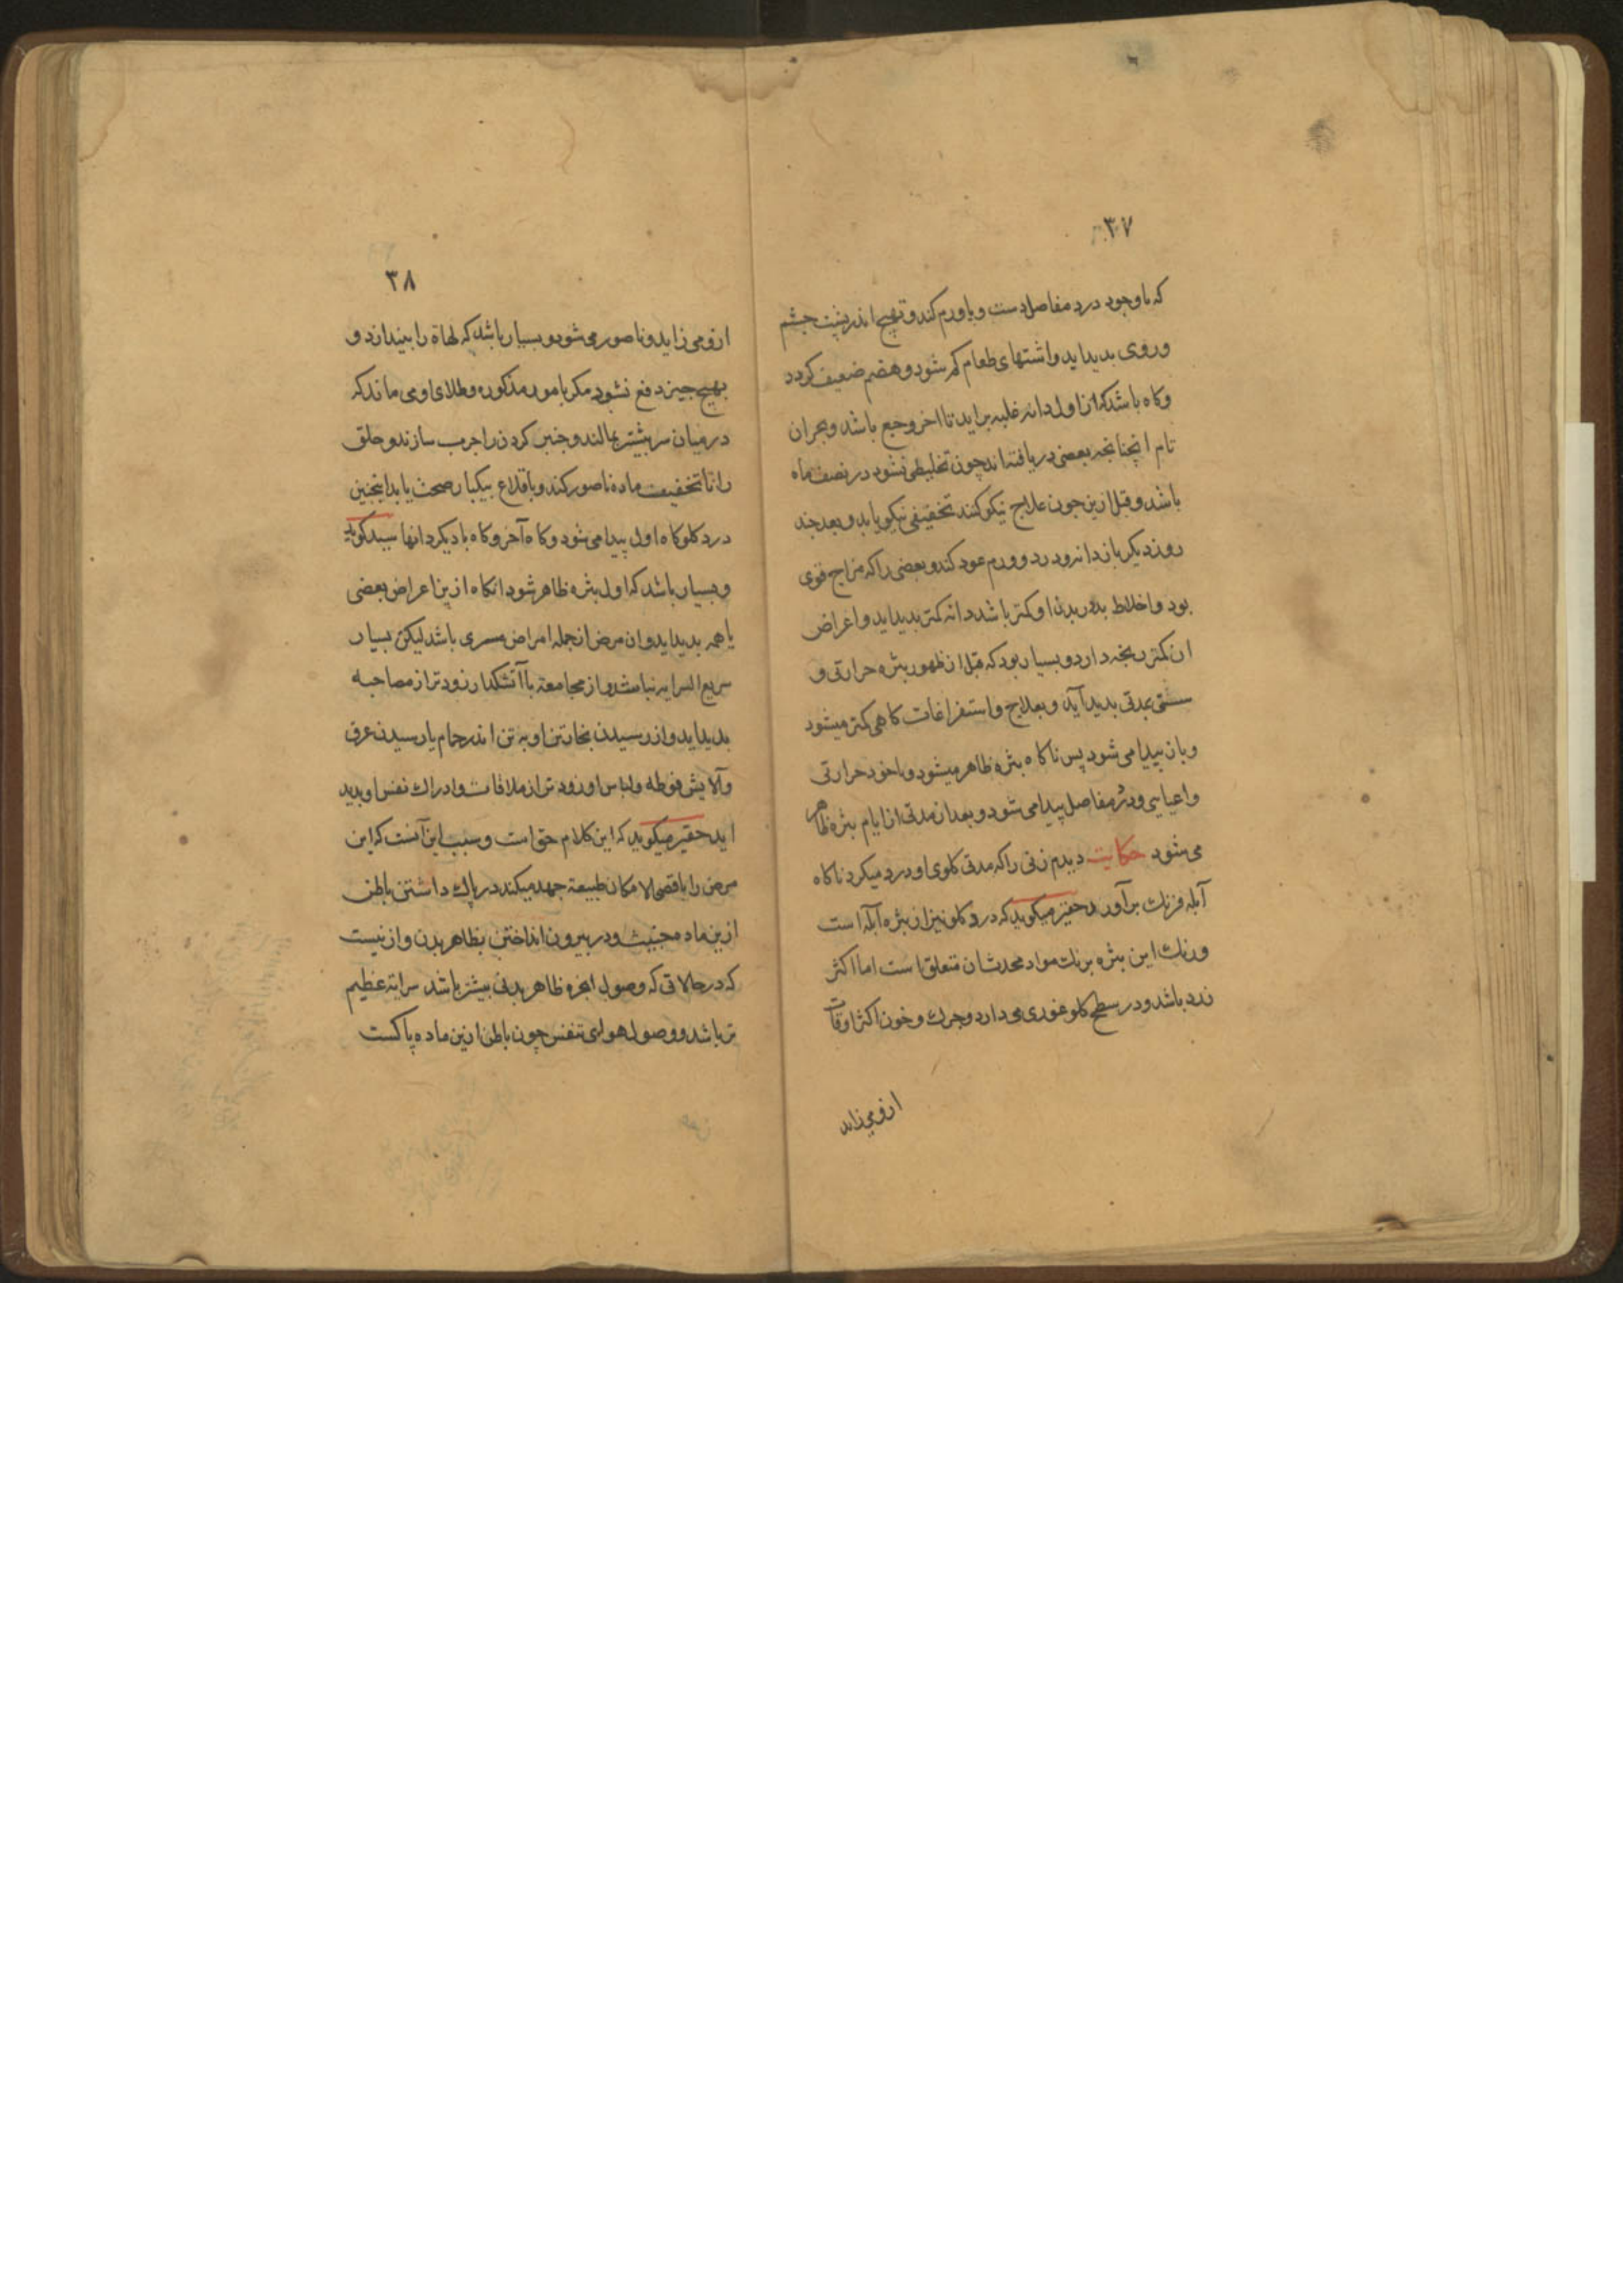 ۳۷
که باوجود درد مفاصل دست و پا ورم کند و تهبج اندر پشت چشم
و روی بدید اید و اشتهای طعام کم شود و هضم ضعیف کردد
و کاه باشد که از اول دانه غلبه براید تا اخر وجع باشد و بحران
تام انچنانچه بعضی دریافته اند چون تخلیطی نشود در نصف ماه
باشد و قبل ازین چون علاج نیکو کنند تخفیفی نیکو یابد و بعد چند
روز دیکر باز دانه و درد و ورم عود کند و بعضی را که مزاج قوی
بود و اخلاط بد در بدن او کمتر باشد دانه کمتر بدید اید و اعراض
ان کمتر رنجه دارد و بسیار بود که قبل از ظهور بثره حرارتی و
سستی مدتی بدید آید و بعلاج و استفراغات کاهی کمتر میشود
و باز پیدا می شود پس ناکاه بثره ظاهر میشود و یا خود حرارتی
و اعیایی و درد مفاصل پیدا می شود و بعد از مدتی از ایام بثره ظاهر
می شود حکایت دیدم زنی را که مدتی کلوی او درد میکرد ناکاه
آبله فرنك برآورد حقیر میکوید که درد کلو نیز از بثره آبله است
و رنك این بثره برنك مواد محدثشان متعلق است اما اکثر
زرد باشد و در سطح کلو غوری می دارد و چرك و خون اکثر اوقات
ازو می زاید
۳۸
ازو می زاید و ناصور می شود و بسیار باشد که لهاة را بیندازد و
بهیچ چیز دفع نشود مکر بامور مذکوره و طلای اومی ماند که
در میان سر بیشتر بمالند و چنبر کردن را چرب سازند و حلق
را تا تخفیف ماده ناصور کند و باقلاع بیکبار صحت یابد اینچنین
درد کلو کاه اول پیدا می شود و کاه آخر و کاه با دیکر دانها سید کوید
و بسیار باشد که اول بثره ظاهر شود انکاه ازین اعراض بعضی
یا همه بدید اید و ان مرض از جمله امراض مسری باشد لیکن بسیار
سریع السرایه نباشد و از مجامعة با آتشکدار زودتر از مصاحبه
بدید اید و از رسیدن بخار تن او به تن اندر حمام یا رسیدن عرق
و آلایش فوطه ولباس او زودتر از ملاقات و ادراك نفس او بدید
اید حقیر میکوید که این کلام حق است و سبب این آنست که این
مرض را باقصی الامکان طبیعة جهد میکند در پاك داشتن باطن
ازین ماده خبیث و در بیرون انداختن بظاهر بدن و ازنیست
که در حالاتی که وصول ابخره ظاهر بدنی بیشتر باشد سرایة عظیم
تر باشد و وصول هوای تنفس چون باطن ازین ماده پاکست